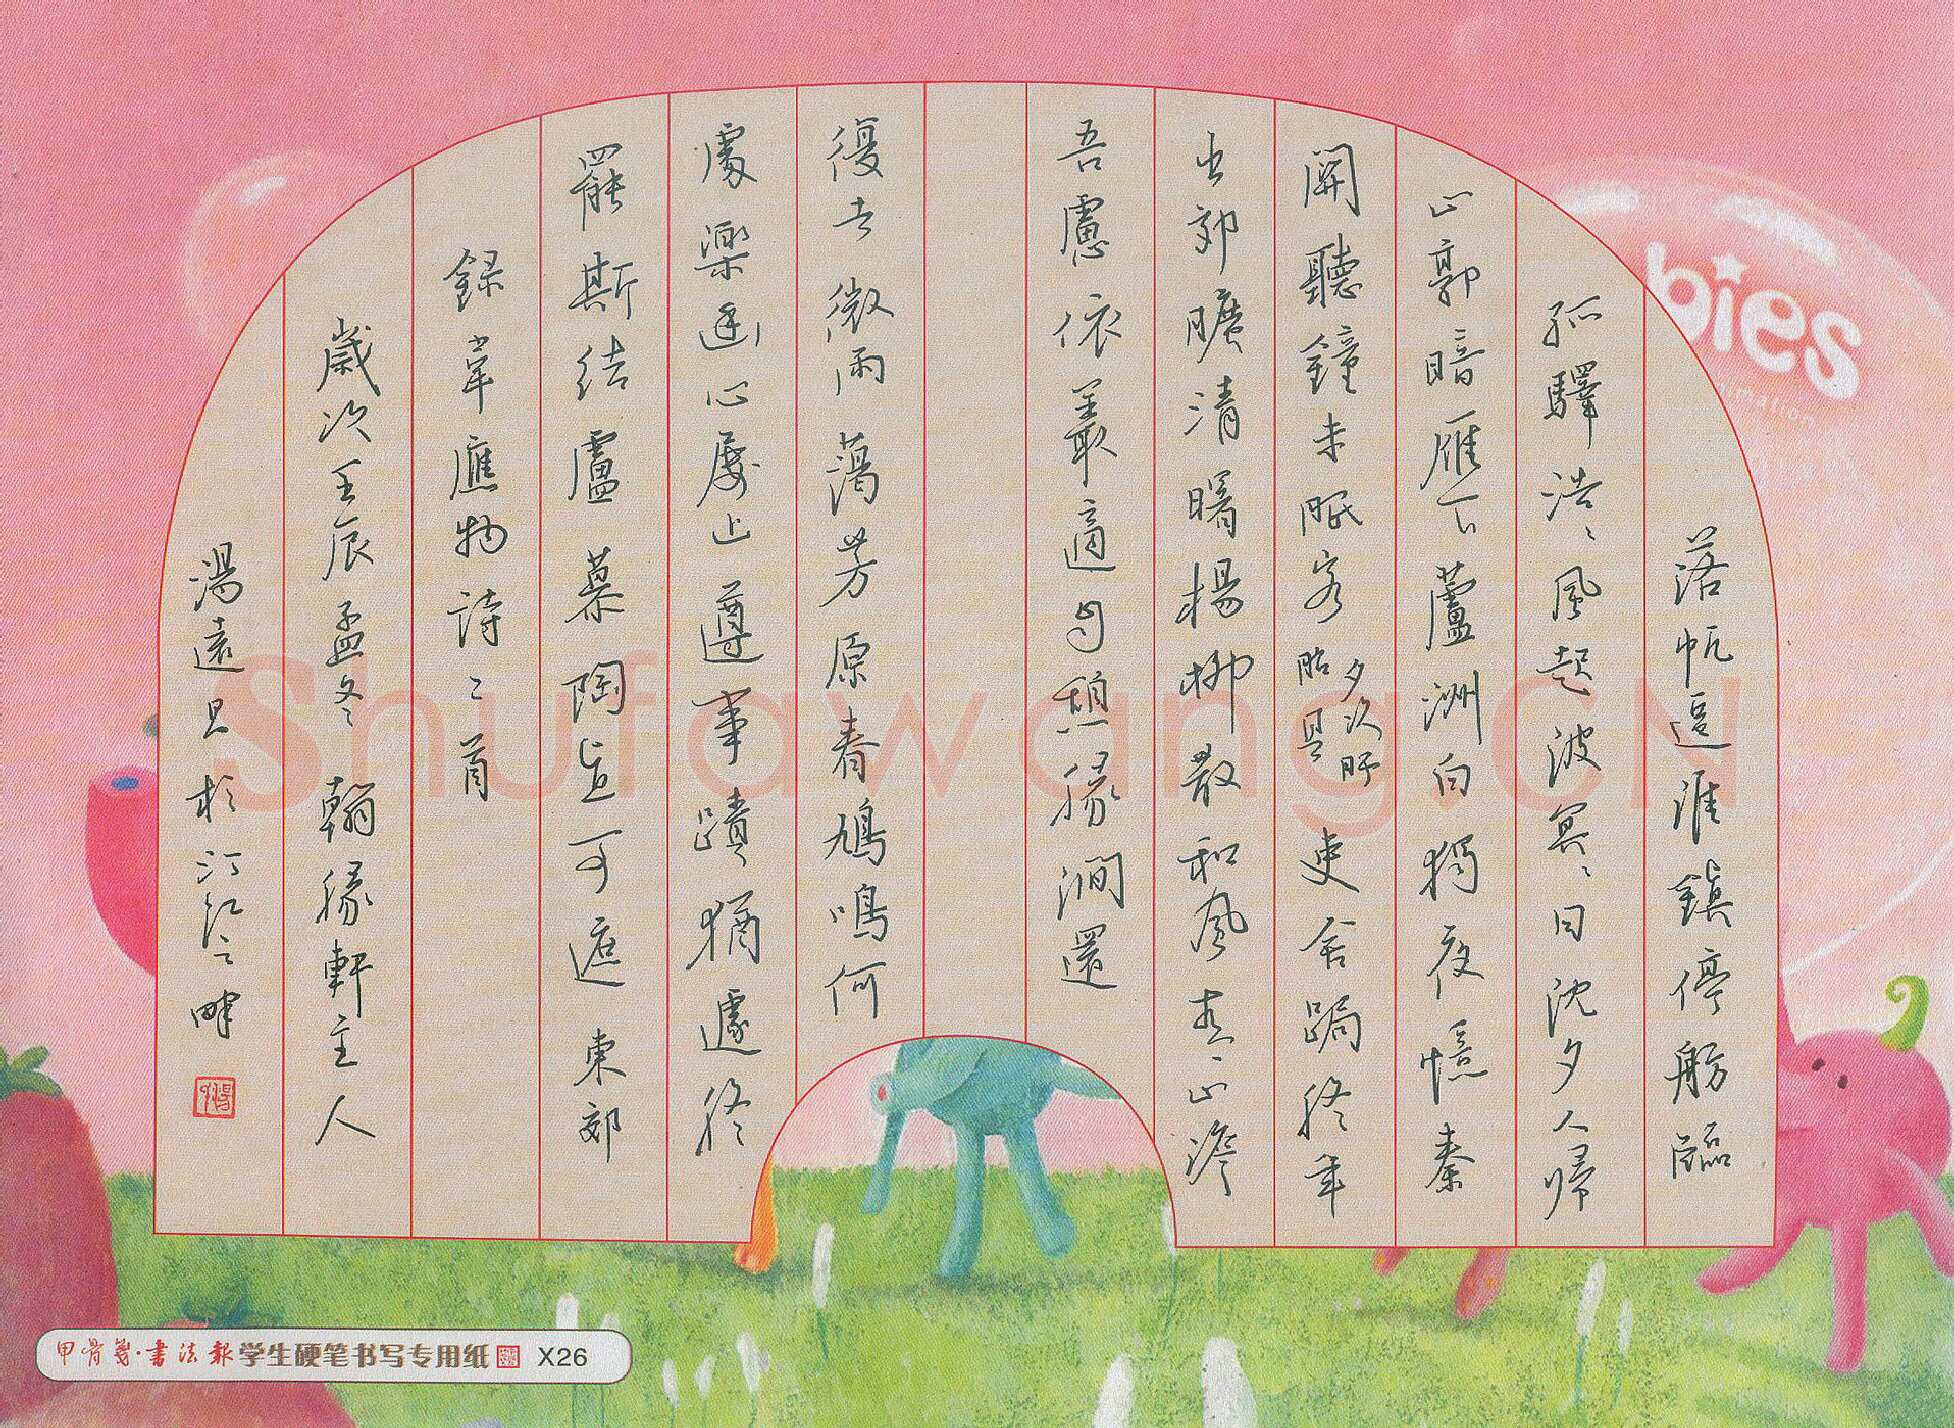 落帆逗淮鎮停舫臨
孤驛浩〻風起波冥〻日沈夕人歸
山郭暗雁下蘆洲白獨夜憶秦
開聽鐘未眠客 夕次盱
眙县 吏舍跼終年
出郊曠清曙楊柳散和風青山澹
吾慮依叢適自憩緣澗還
復去微雨藹芳原春鳩鳴何
處樂幽心屢止遵事蹟猶遽終
罷斯结廬慕陶直可遮東郊
錄韋應物詩二首
歲次壬辰孟冬翰緣軒主人
湯遠旦於汀江之畔
甲骨箋·書法報学生硬笔书写专用纸 X26
bies
Shufawang.CN